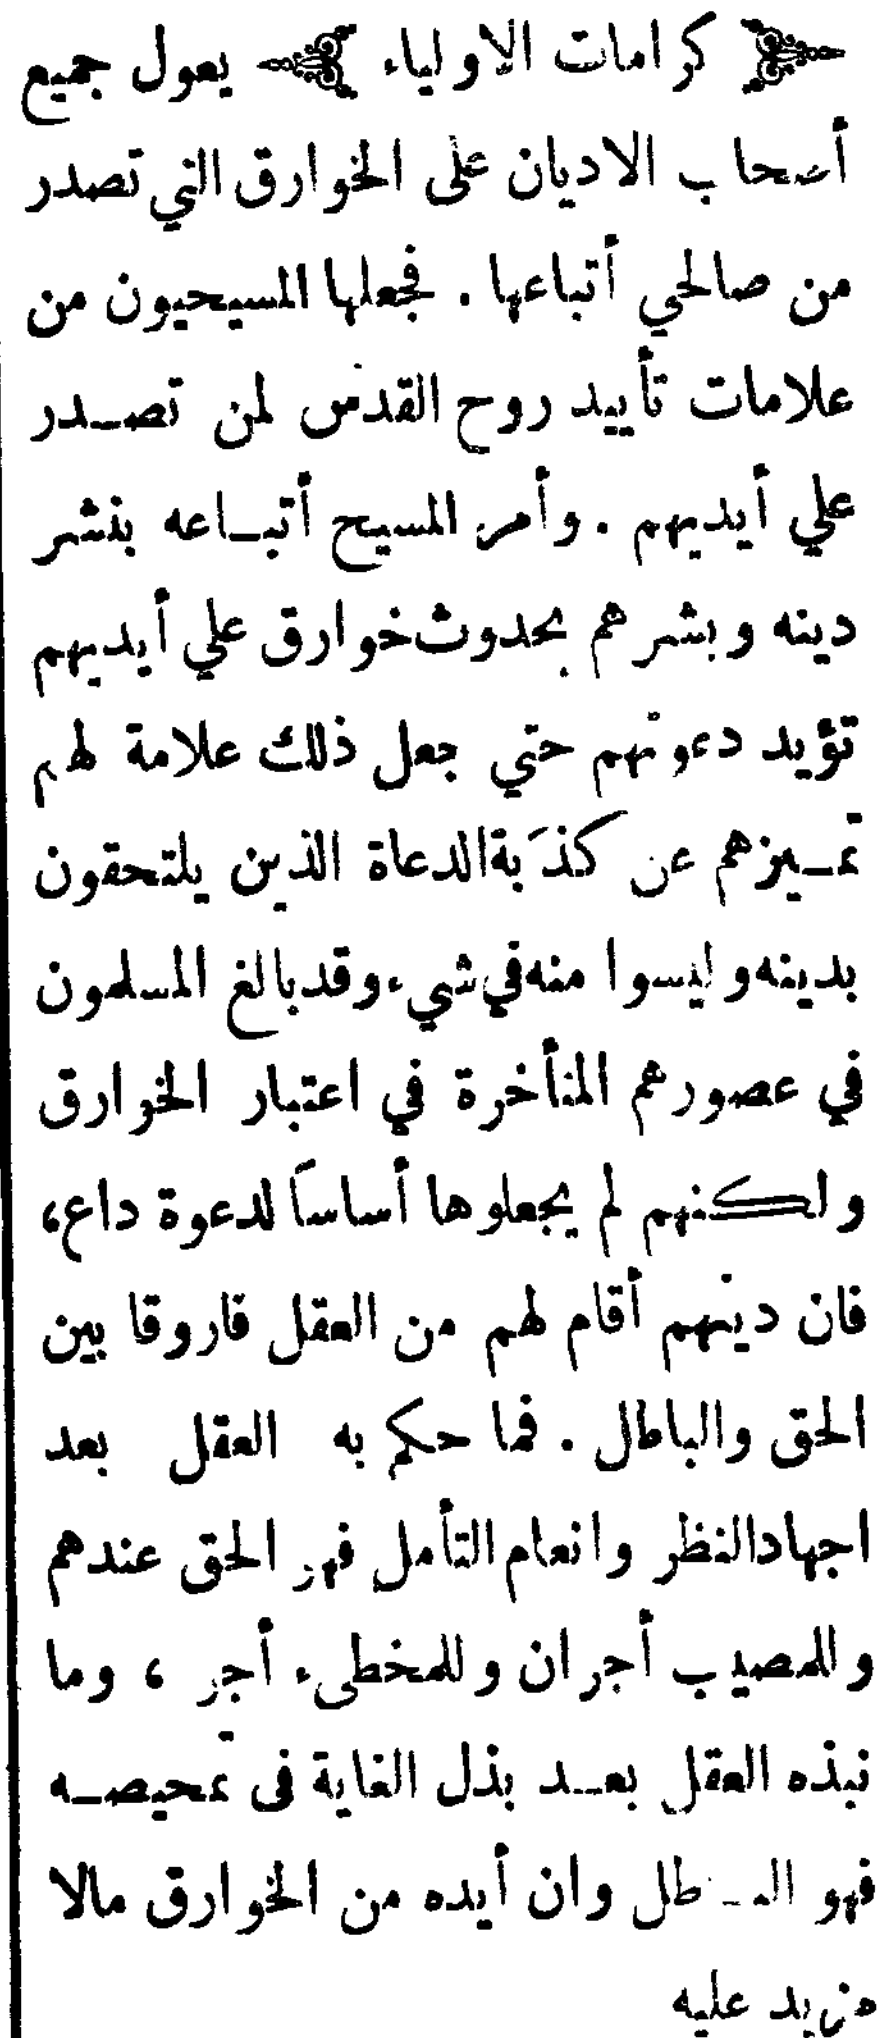 كرامات الاولياء يعول جميع
أصحاب الاديان على الخوارق التي تصدر
من صالحي أتباعها . فجعلها المسيحيون من
علامات تأييد روح القدس لمن تصـدر
علي أيديهم . وأمر المسيح أتبـاعه بنشر
دينه وبشرهم بحدوث خوارق علي أيديهم
تؤيد دعوتهم حتي جعل ذلك علامة لهم
تمـيزهم عن كذَبة الدعاة الذين يلتحقون
بدينه وليسوا منه في شيء وقد بالغ المسلمون
في عصورهم المتأخرة في اعتبار الخوارق
ولكنهم لم يجعلوها أساساً لدعوة داع،
فان دينهم أقام لهم من العقل فاروقا بين
الحق والباطل . فما حكم به العقل بعد
اجهاد النظر وانعام التأمل فهو الحق عندهم
وللمصيب أجران وللمخطىء أجر ، وما
نبذه العقل بعـد بذل الغاية فى تمحيصـه
فهو البـاطل وان أيده من الخوارق مالا
مزيد عليه